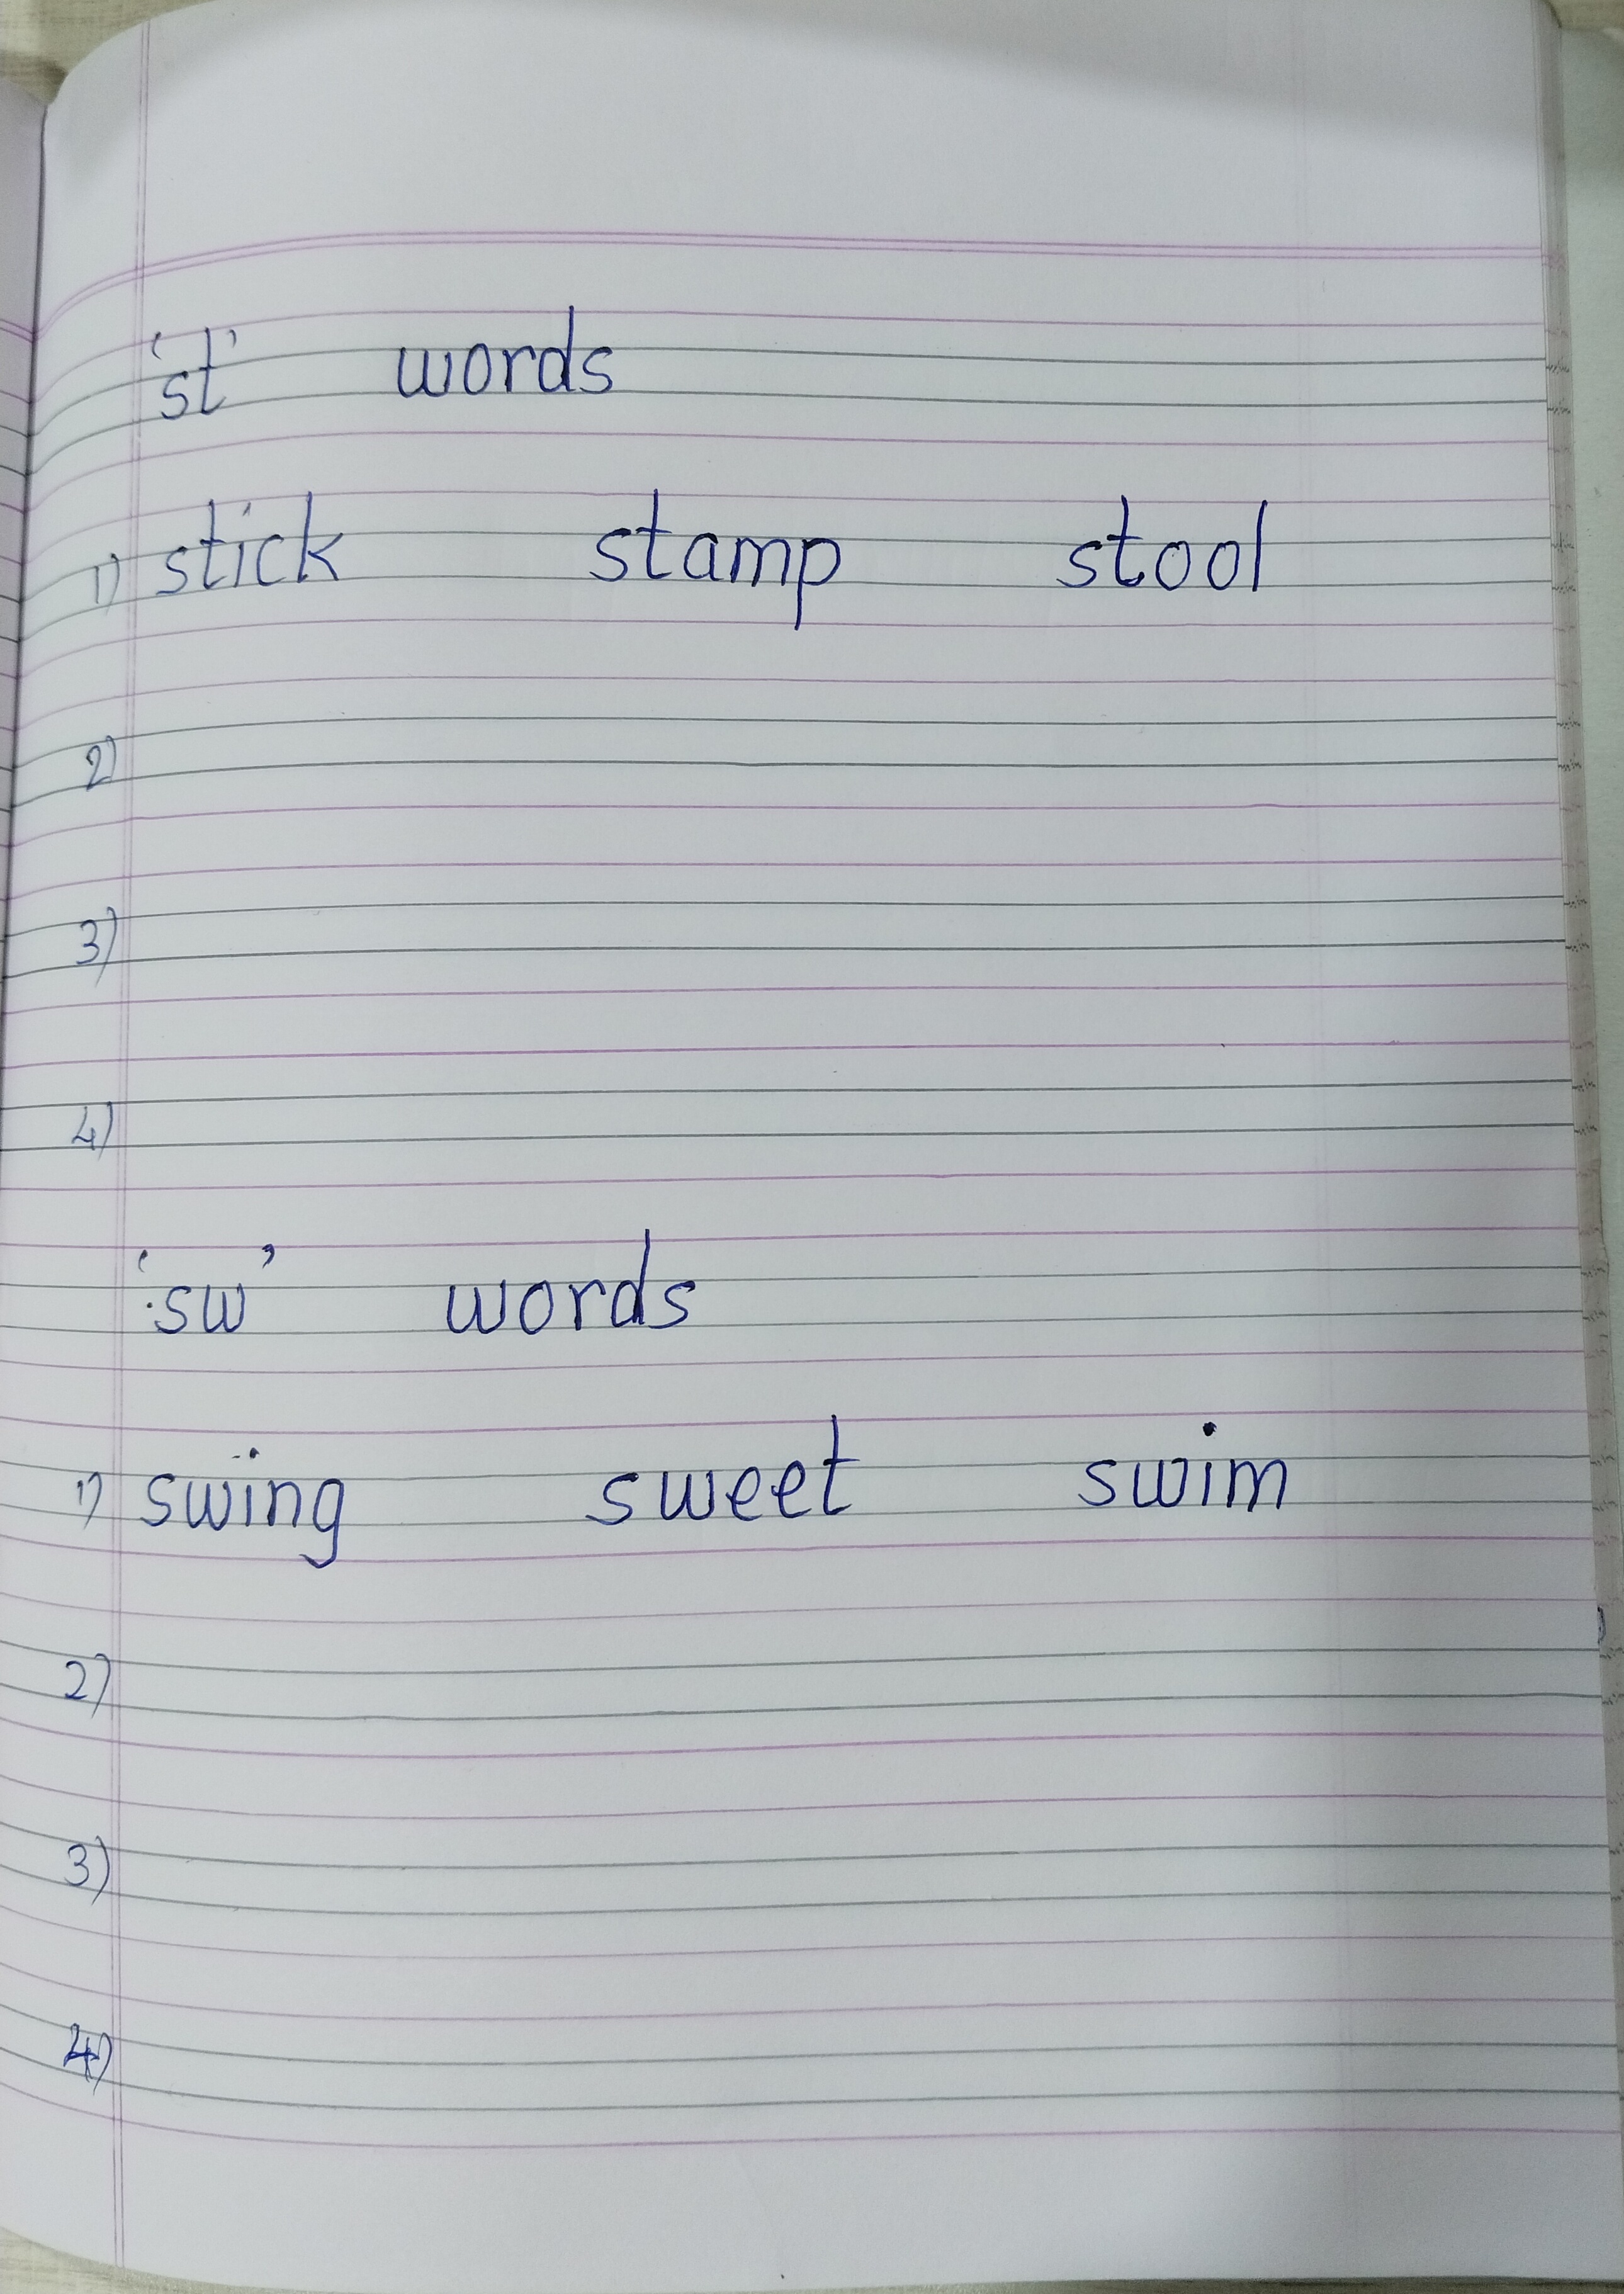 'st' words
1) stick stamp stool
2)
3)
4)
'sw' words
1) swing sweet swim
2)
3)
4)